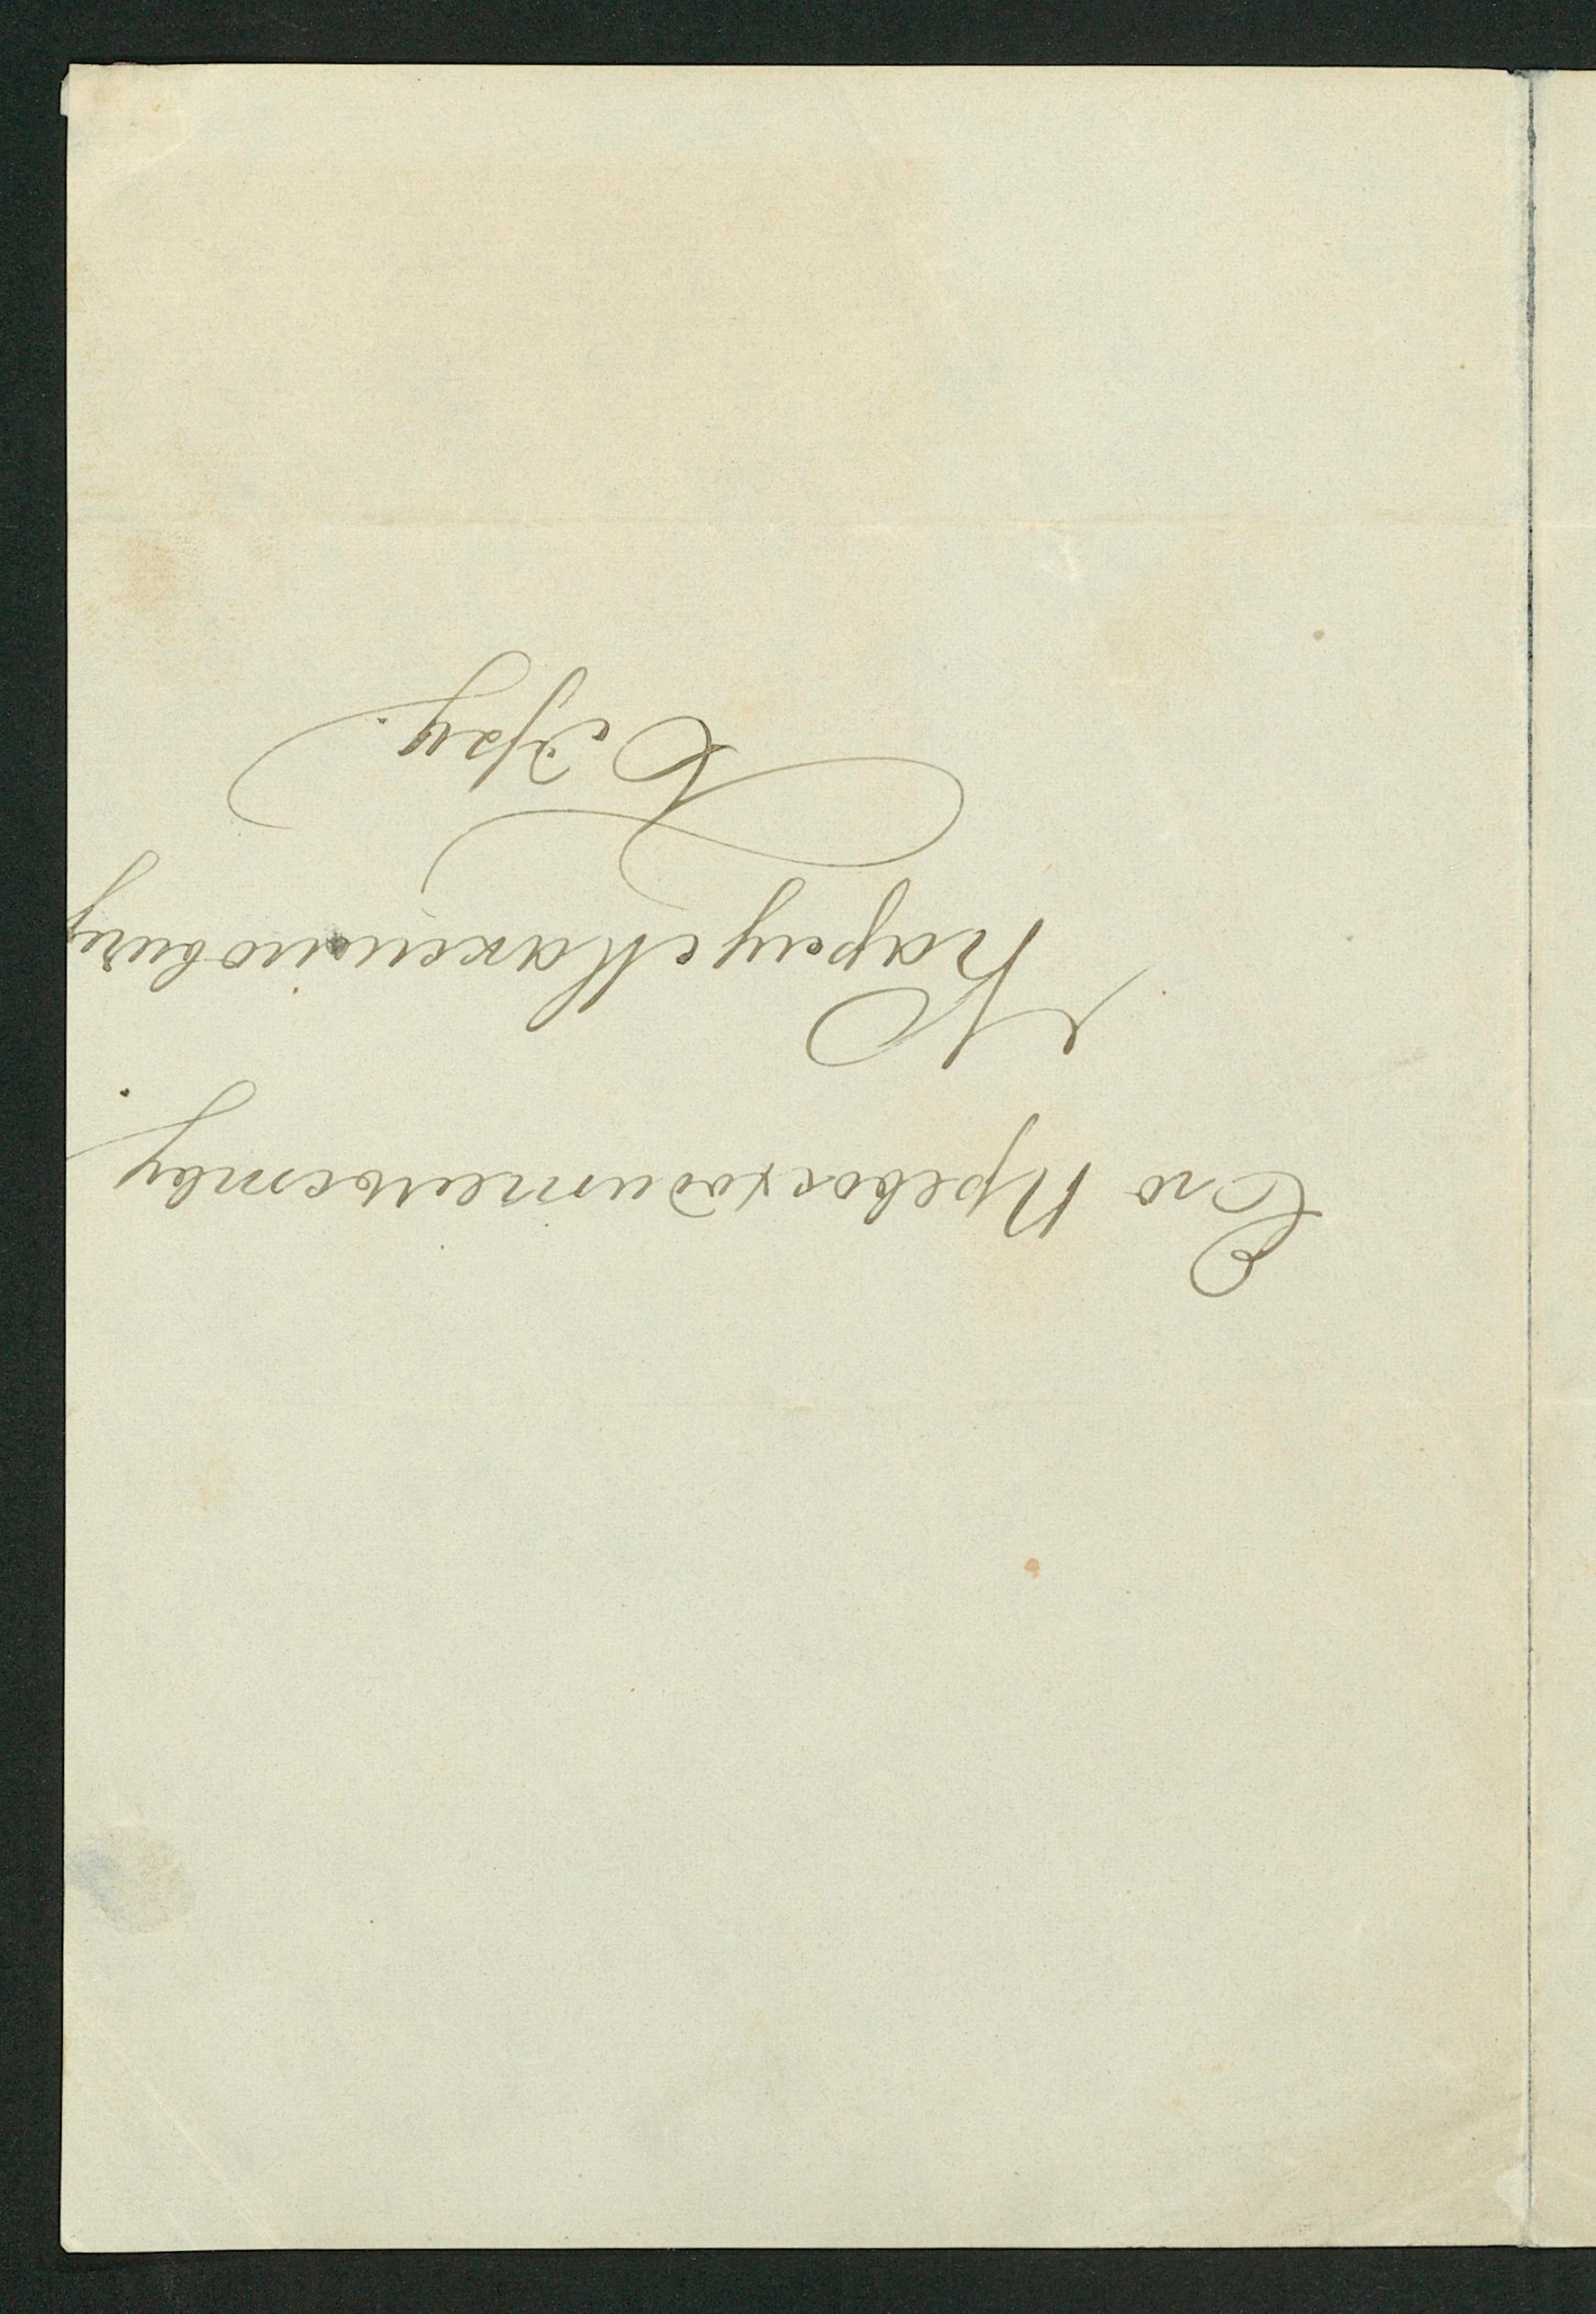 Его Превосходительству
Карлу Максимовичу
Бэру.